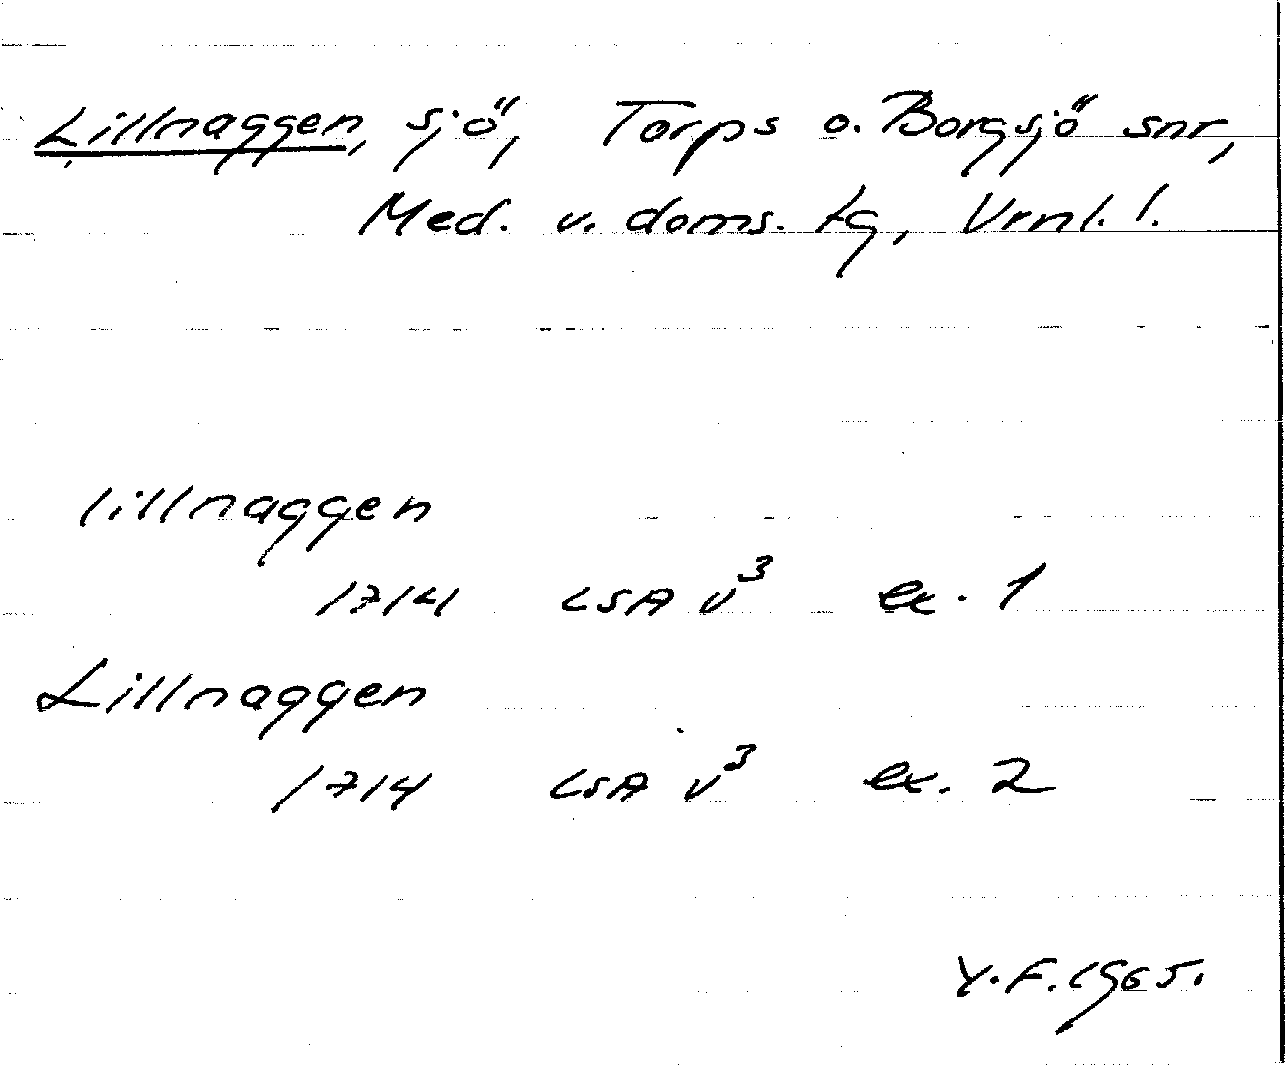 Lillnaggen, sjö, Torps o. Borgsjö snr,
Med. v. doms. tg, Vrnl. l.
lillnaggen
1714 LSA V³ ex. 1
Lillnaggen
1714 LSA V³ ex. 2
Y.F. 1965.